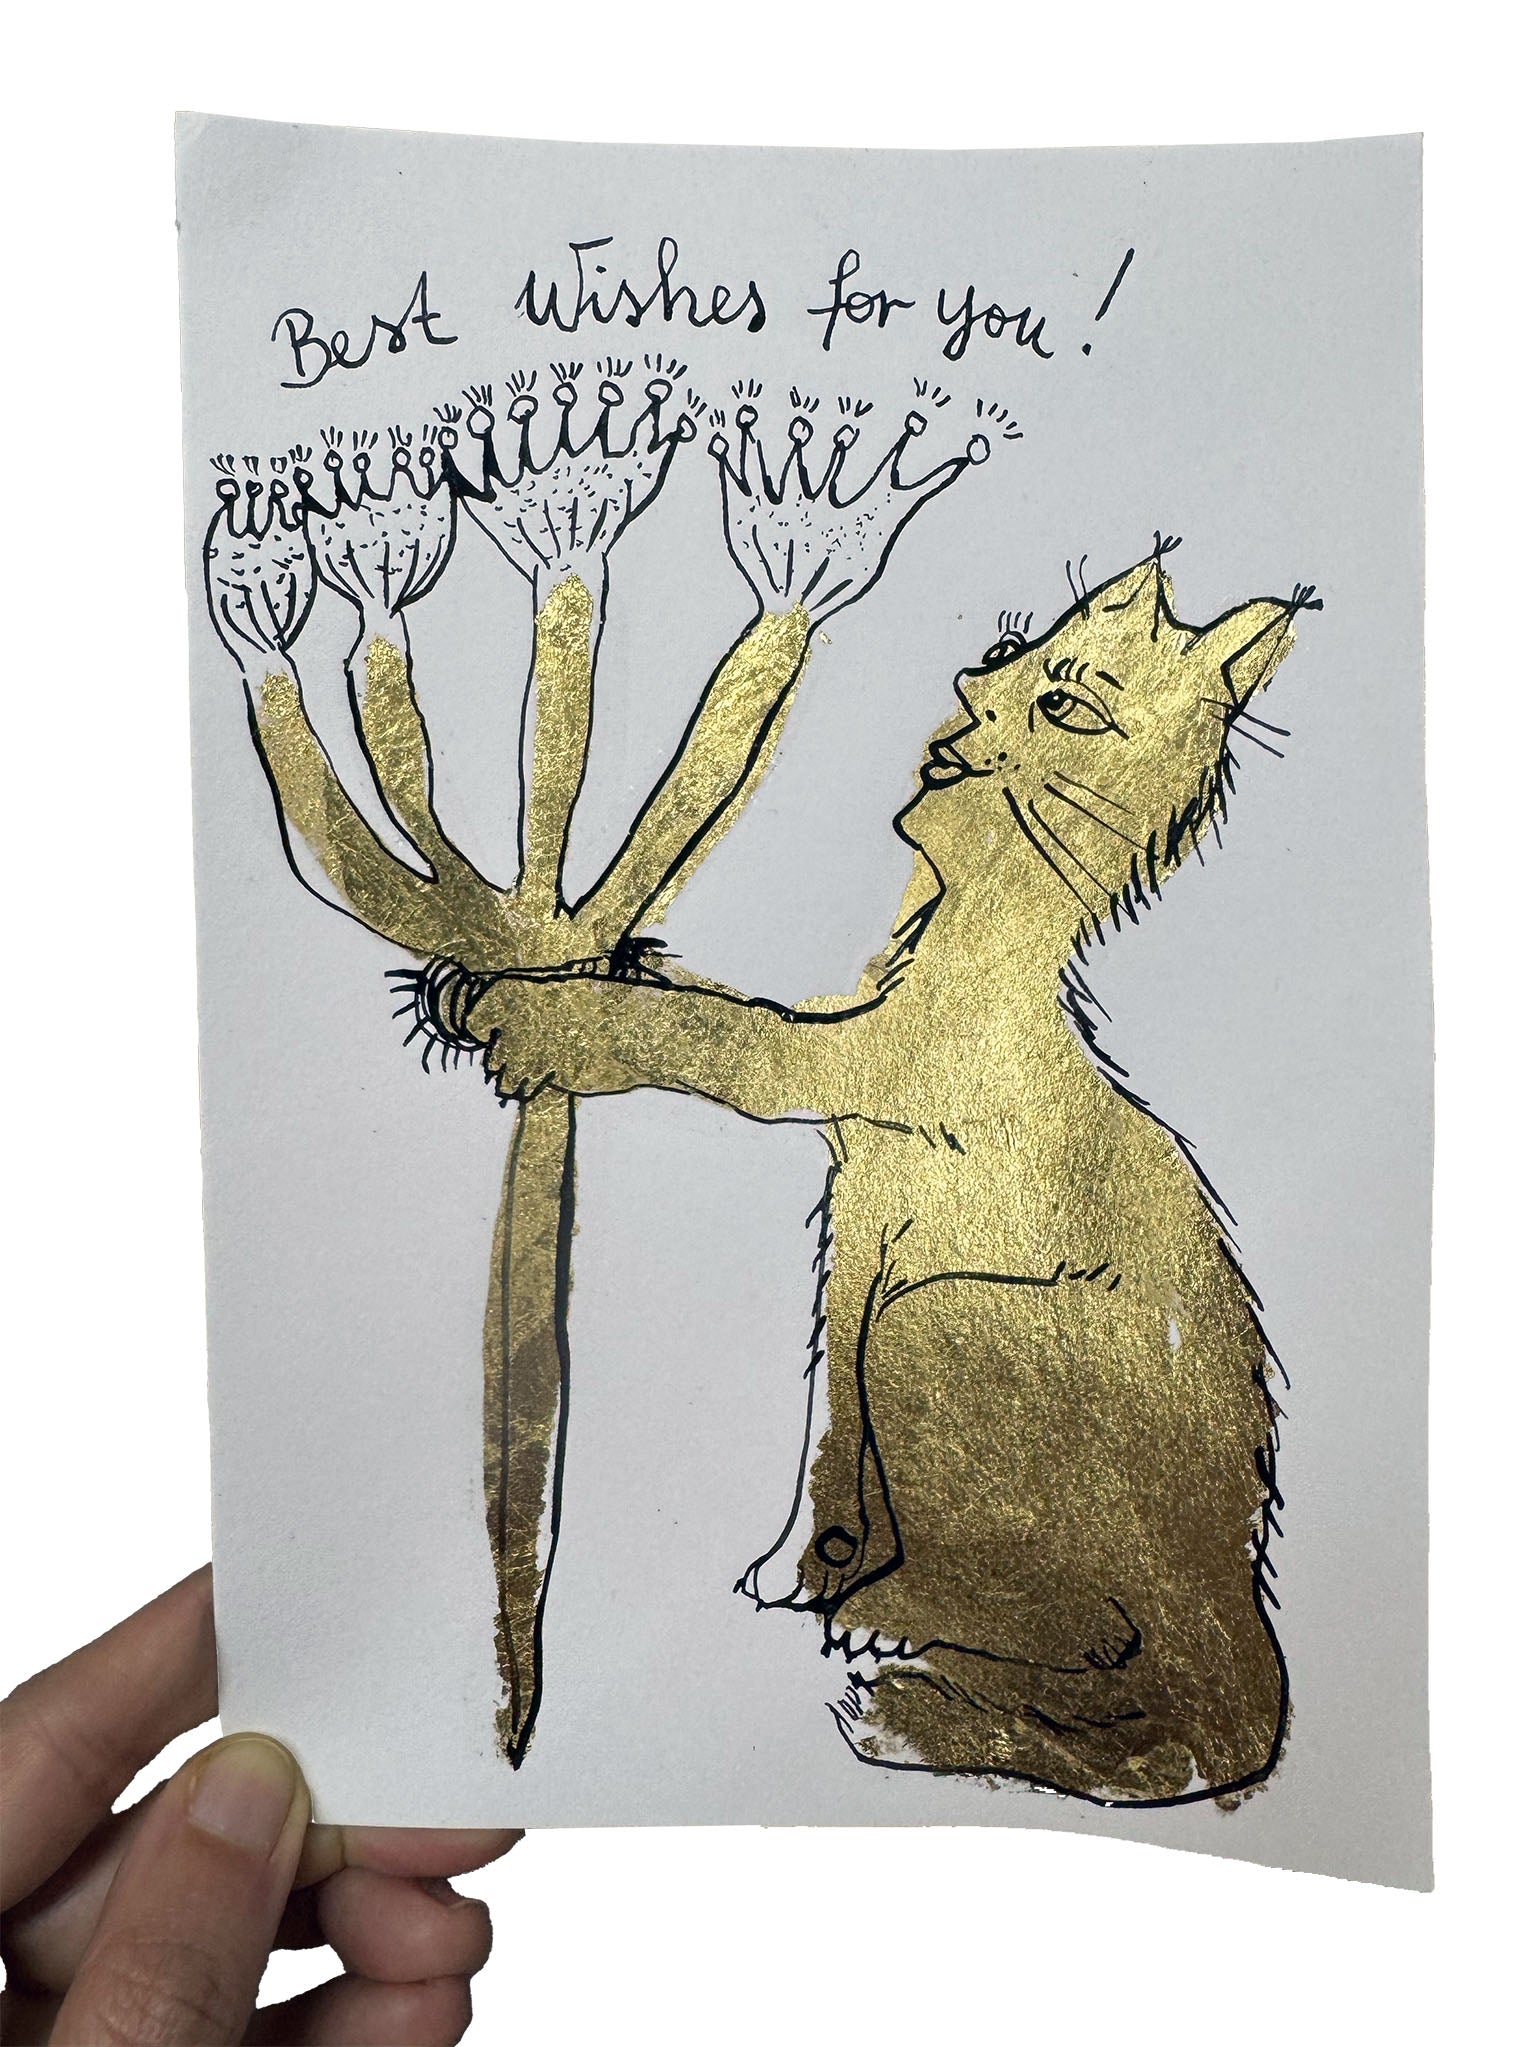 Best Wishes for you!